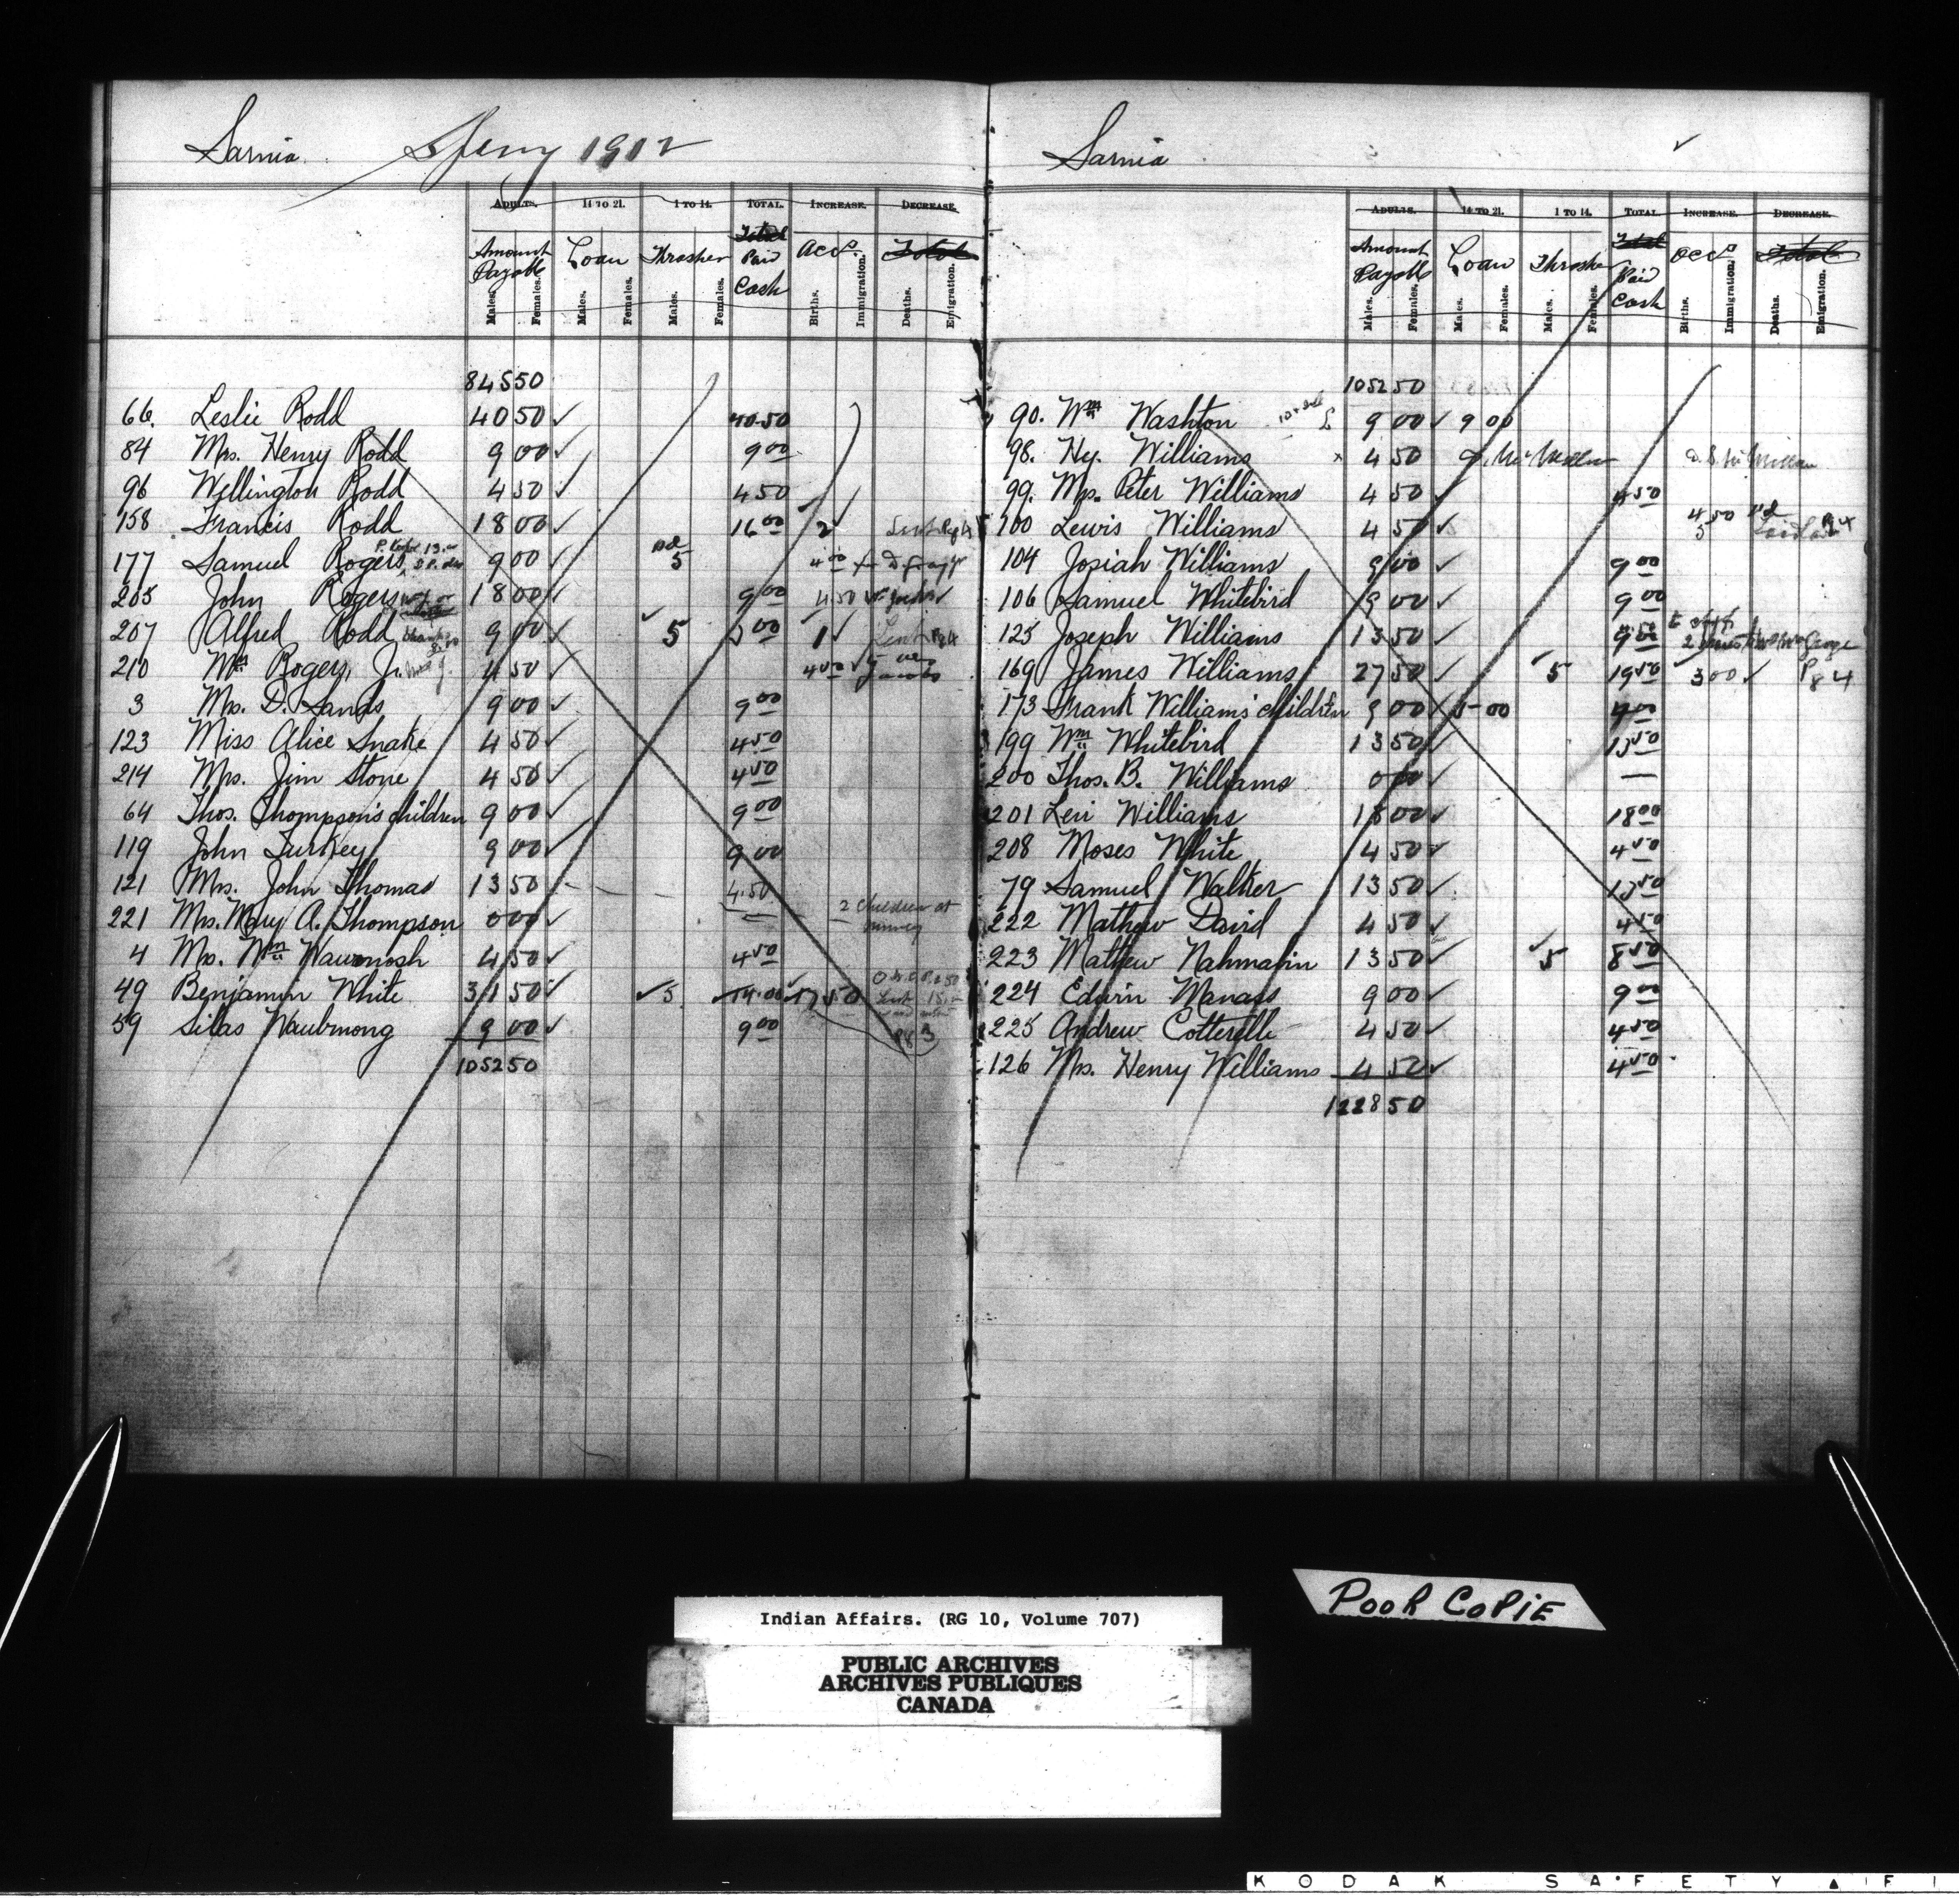 Sarnia. Spring 1912
ADULTS. 14 TO 21. 1 TO 14. TOTAL. INCREASE. DECREASE.
Amount Payable Loan Thrasher Total Paid Cash Acct. Total
Males. Females. Males. Females. Males. Females. Births. Immigration. Deaths. Emigration.
845 50
66. Leslie Rodd 40 50 ✓ 40.50
84 Mrs. Henry Rodd 9 00 ✓ 9 00
96 Wellington Rodd 4 50 ✓ 4 50
158 Francis Rodd 18 00 ✓ 16 00 2 ✓
177 Samuel Rogers 9 00 ✓ 5 4 00
205 John Rogers 18 00 ✓ 9 00 4 50
207 Alfred Rodd 9 00 ✓ ✓ 5 3 00 1 ✓
210 Wm Rogers, Jr. 4 50 ✓ 4 50 ✓
3 Mrs. D. Sands 9 00 ✓ 9 00
123 Miss Alice Snake 4 50 ✓ 4 50
214 Mrs. Jim Stone 4 50 ✓ 4 50
64 Thos. Thompson's children 9 00 ✓ 9 00
119 John Turkey 9 00 ✓ 9 00
121 Mrs. John Thomas 13 50 4.50
221 Mrs. Mary A. Thompson 0 00 ✓ — 2 children at
4 Mrs. Wm Wawanosh 4 50 ✓ 4 50
49 Benjamin White 31 50 ✓ ✓ 5 ✓ 14.00 ✓ 17 50
59 Silas Waubmong 9 00 ✓ 9 00 Pg 3
1052 50
Sarnia ✓
ADULTS. 14 TO 21. 1 TO 14. TOTAL. INCREASE. DECREASE.
Amount Payable Loan Thrasher Total Paid Cash Acct. Total
Males. Females. Males. Females. Males. Females. Births. Immigration. Deaths. Emigration.
1052 50
90. Wm Washton 9 00 ✓ 9 00
98. Hy. Williams x 4 50
99. Mrs. Peter Williams 4 50 ✓ 4 50
100 Lewis Williams 4 50 ✓ 4 50
104 Josiah Williams 9 00 ✓ 9 00
106 Samuel Whitebird 9 00 ✓ 9 00
125 Joseph Williams 13 50 ✓ 9 00
169 James Williams 27 50 ✓ ✓ 5 19 50 3 00 ✓ Pg 4
173 Frank Williams' children 9 00 5 00 4 00
199 Wm Whitebird 13 50 ✓ 13 50
200 Thos. B. Williams 0 00 ✓ —
201 Levi Williams 18 00 ✓ 18 00
208 Moses White 4 50 ✓ 4 50
79 Samuel Walker 13 50 ✓ 13 50
222 Mathew David 4 50 ✓ 4 50
223 Mathew Nahmabin 13 50 ✓ ✓ 5 8 50
224 Edwin Manass 9 00 ✓ 9 00
225 Andrew Cotterelle 4 50 ✓ 4 50
126 Mrs. Henry Williams 4 50 ✓ 4 50
1228 50
Indian Affairs. (RG 10, Volume 707)
PUBLIC ARCHIVES
ARCHIVES PUBLIQUES
CANADA
POOR COPIE
KODAK SAFETY ▲ FI